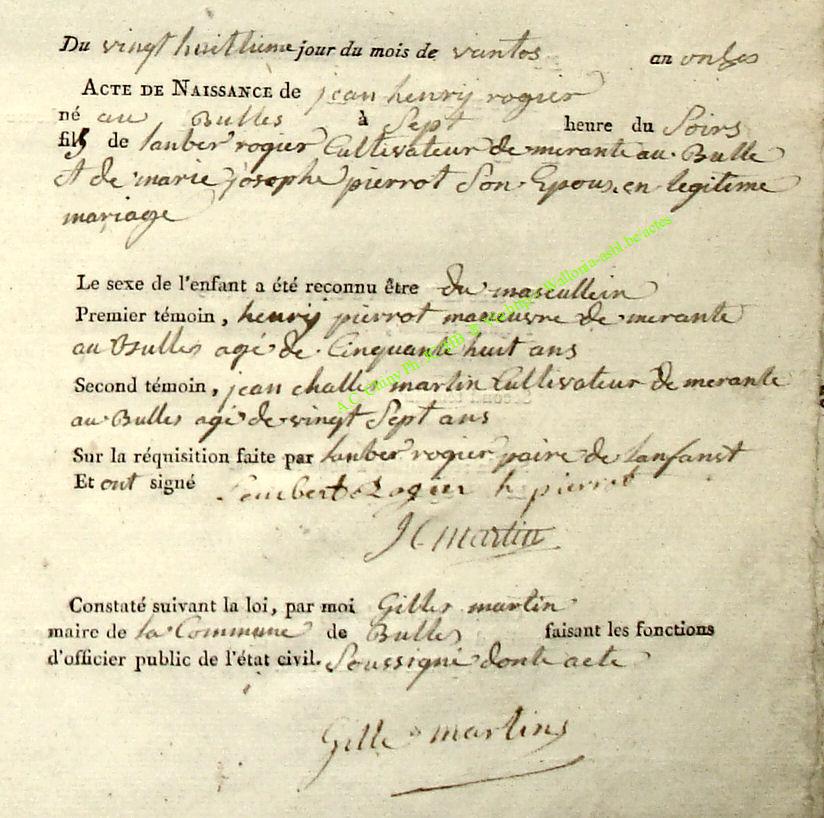 Du vingt huittieme jour du mois de vantos an onhes
ACTE DE NAISSANCE de jean henrÿ rogier
né au Bulles à Sept heure du Soirs
fils de lanber rogier Cultivateur de merante au Bulle
et de marie josephe pierrot Son Epous en legitime
mariage
Le sexe de l'enfant a été reconnu être du mascullein
Premier témoin, henrÿ pierrot maneuvre de merante
au Bulles agé de Cinquante huit ans
Second témoin, jean challes martin Cultivateur de merante
au Bulles agé de vingt Sept ans
Sur la réquisition faite par lanber rogier paire de lanfanst
Et ont signé Lambert Rogier h pierrot
J C martin
Constaté suivant la loi, par moi Gilles martin
maire de la Commune de Bulles faisant les fonctions
d'officier public de l'état civil. Soussigné donte acte
Gille martins